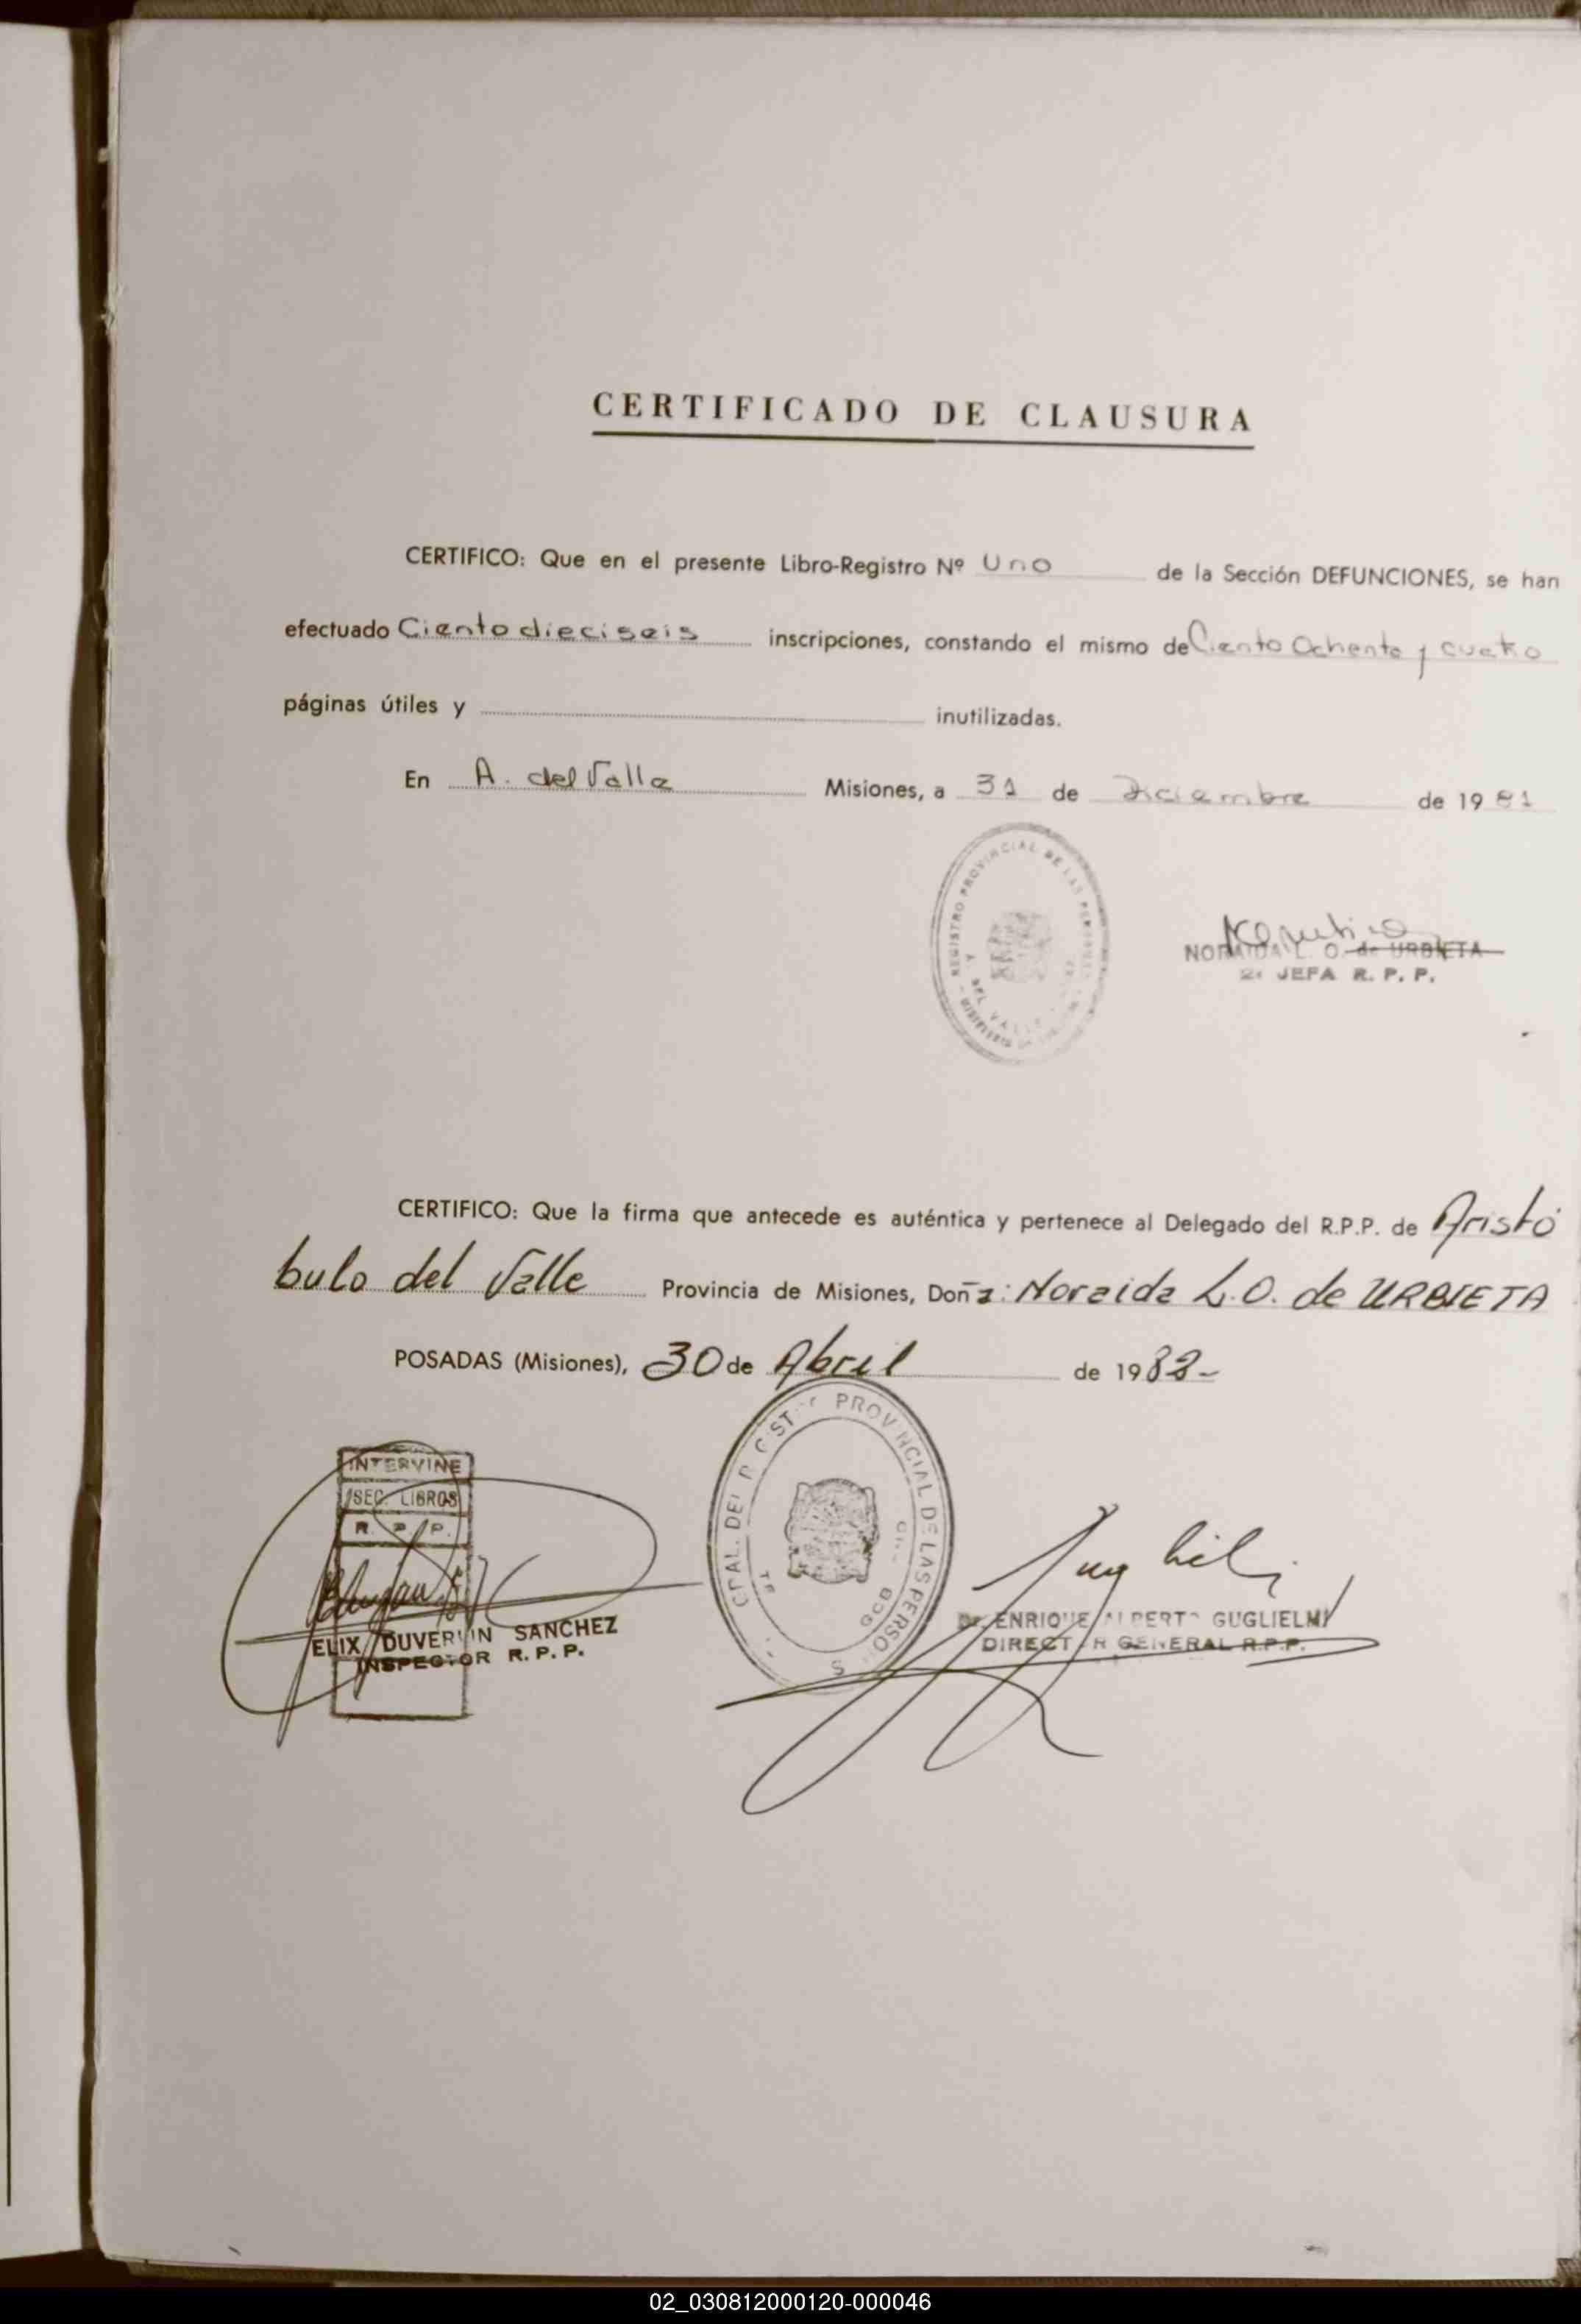 CERTIFICADO DE CLAUSURA
CERTIFICO: Que en el presente Libro-Registro Nº Uno de la Sección DEFUNCIONES, se han
efectuado Ciento dieciseis inscripciones, constando el mismo de Ciento Ochenta y cuatro
páginas útiles y inutilizadas.
En A. del Valle Misiones, a 31 de Diciembre de 1981
REGISTRO PROVINCIAL DE LAS PERSONAS
DEL VALLE
NORAIDA L. O. de URBIETA
JEFA R. P. P.
CERTIFICO: Que la firma que antecede es auténtica y pertenece al Delegado del R.P.P. de Aristó
bulo del Valle Provincia de Misiones, Doña: Noraida L.O. de URBIETA
POSADAS (Misiones), 30 de Abril de 1982-
GRAL. DEL REGISTRO PROVINCIAL DE LAS PERSONAS
INTERVINE
SEC. LIBROS
R. P. P.
ELIX DUVERLIN SANCHEZ
INSPECTOR R. P. P.
Dr. ENRIQUE ALBERTO GUGLIELMI
DIRECTOR GENERAL R.P.P.
02_030812000120-000046